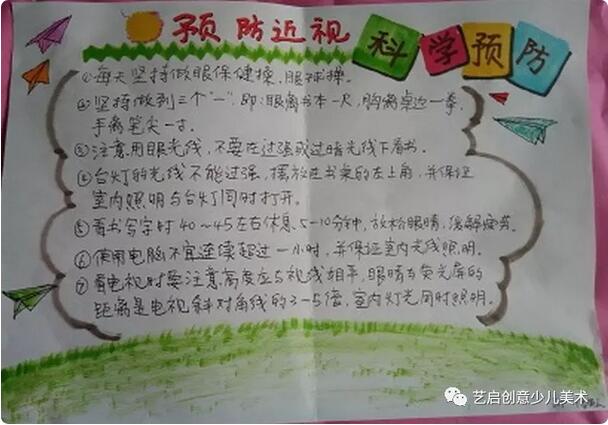 预防近视
科学预防
①每天坚持做眼保健操，眼球操。
②坚持做到三个“一”，即：眼离书本一尺，胸离桌边一拳，
手离笔尖一寸。
③注意用眼光线，不要在过强或过暗光线下看书。
④台灯的光线不能过强，摆放在书桌的左上角，并保证
室内照明与台灯同时打开。
⑤看书写字时40～45左右休息5-10分钟，放松眼睛，缓解疲劳。
⑥使用电脑不宜连续超过一小时，并保证室内光线照明。
⑦看电视时要注意高度应与视线相平，眼睛与荧光屏的
距离是电视斜对角线的3-5倍，室内灯光同时照明。
艺启创意少儿美术